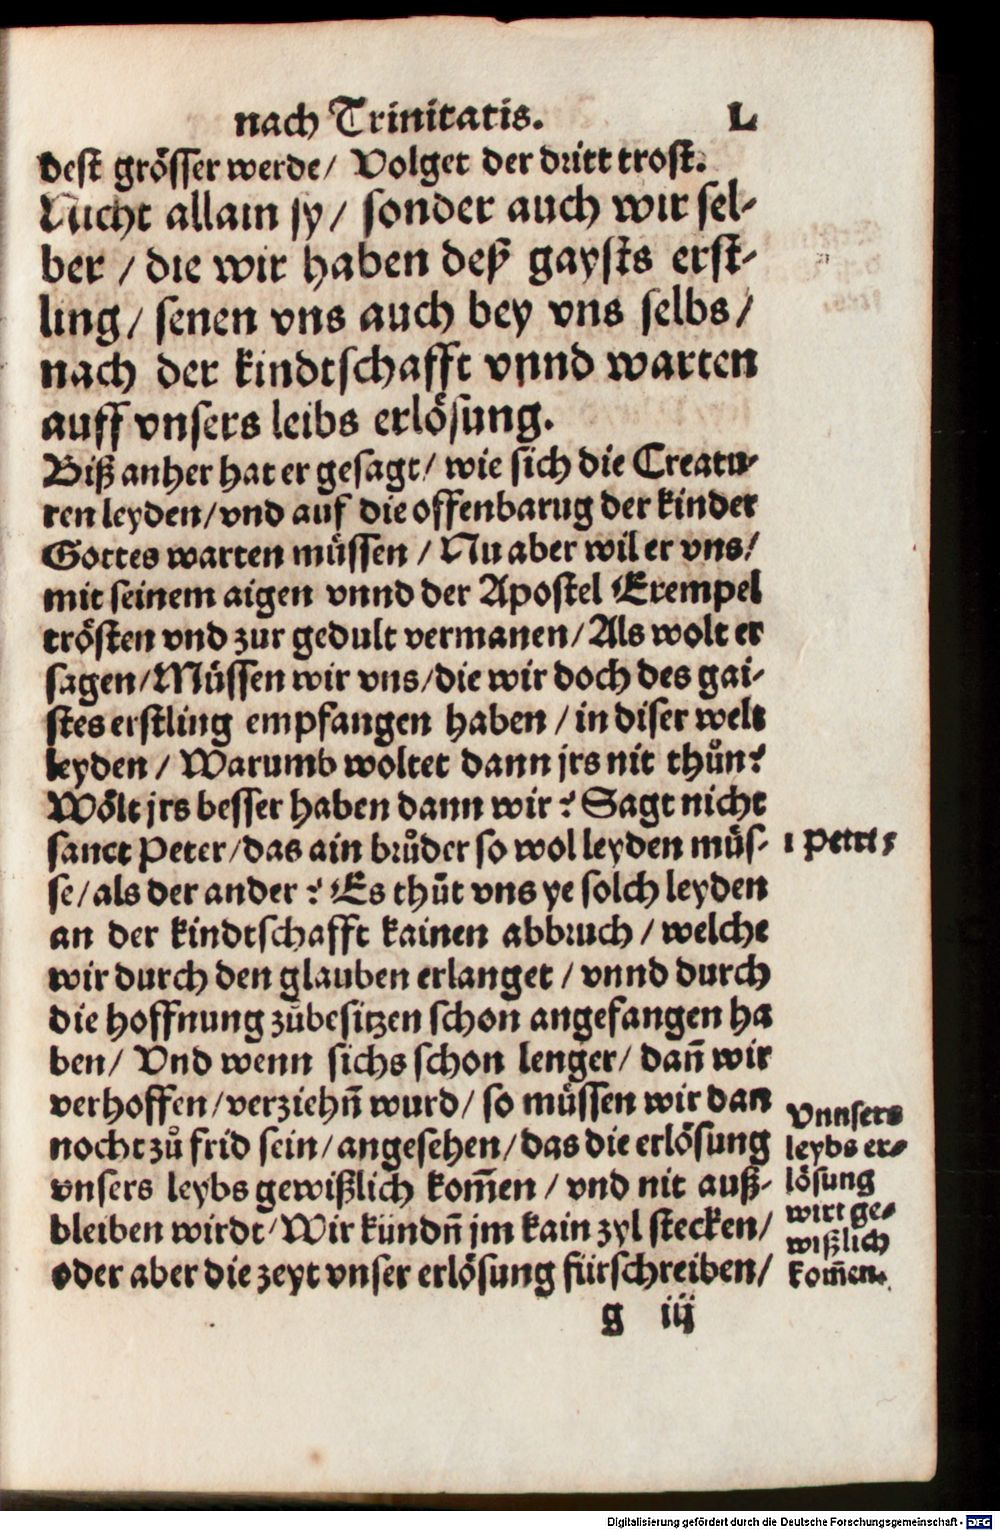 nach Trinitatis. L
dest grösser werde/ Volget der dritt trost.
Nicht allain sy/ sonder auch wir sel-
ber / die wir haben deß gaysts erst-
ling/ senen vns auch bey vns selbs/
nach der kindtschafft vnnd warten
auff vnsers leibs erlösung.
Biß anher hat er gesagt/ wie sich die Creatu-
ren leyden/vnd auf die offenbarug der kinder
Gottes warten müssen / Nu aber wil er vns/
mit seinem aigen vnnd der Apostel Exempel
trösten vnd zur gedult vermanen/Als wolt er
sagen/Müssen wir vns/die wir doch des gai-
stes erstling empfangen haben /in diser welt
leyden / Warumb woltet dann jrs nit thůn?
Wölt jrs besser haben dann wir? Sagt nicht
sanct Peter/das ain brůder so wol leyden müs-
se/als der ander? Es thůt vns ye solch leyden
an der kindtschafft kainen abbruch / welche
wir durch den glauben erlanget / vnnd durch
die hoffnung zůbesitzen schon angefangen ha
ben/ Vnd wenn sichs schon lenger/ dañ wir
verhoffen/verziehñ wurd/ so müssen wir dan
nocht zů frid sein/angesehen/das die erlösung
vnsers leybs gewißlich kom̃en / vnd nit auß-
bleiben wirdt/Wir kündñ jm kain zyl stecken/
oder aber die zeyt vnser erlösung fürschreiben/
1 Petri 5
Vnnsers
leybs er-
lösung
wirt ge-
wißlich
kom̃en.
g iij
Digitalisierung gefördert durch die Deutsche Forschungsgemeinschaft - DFG